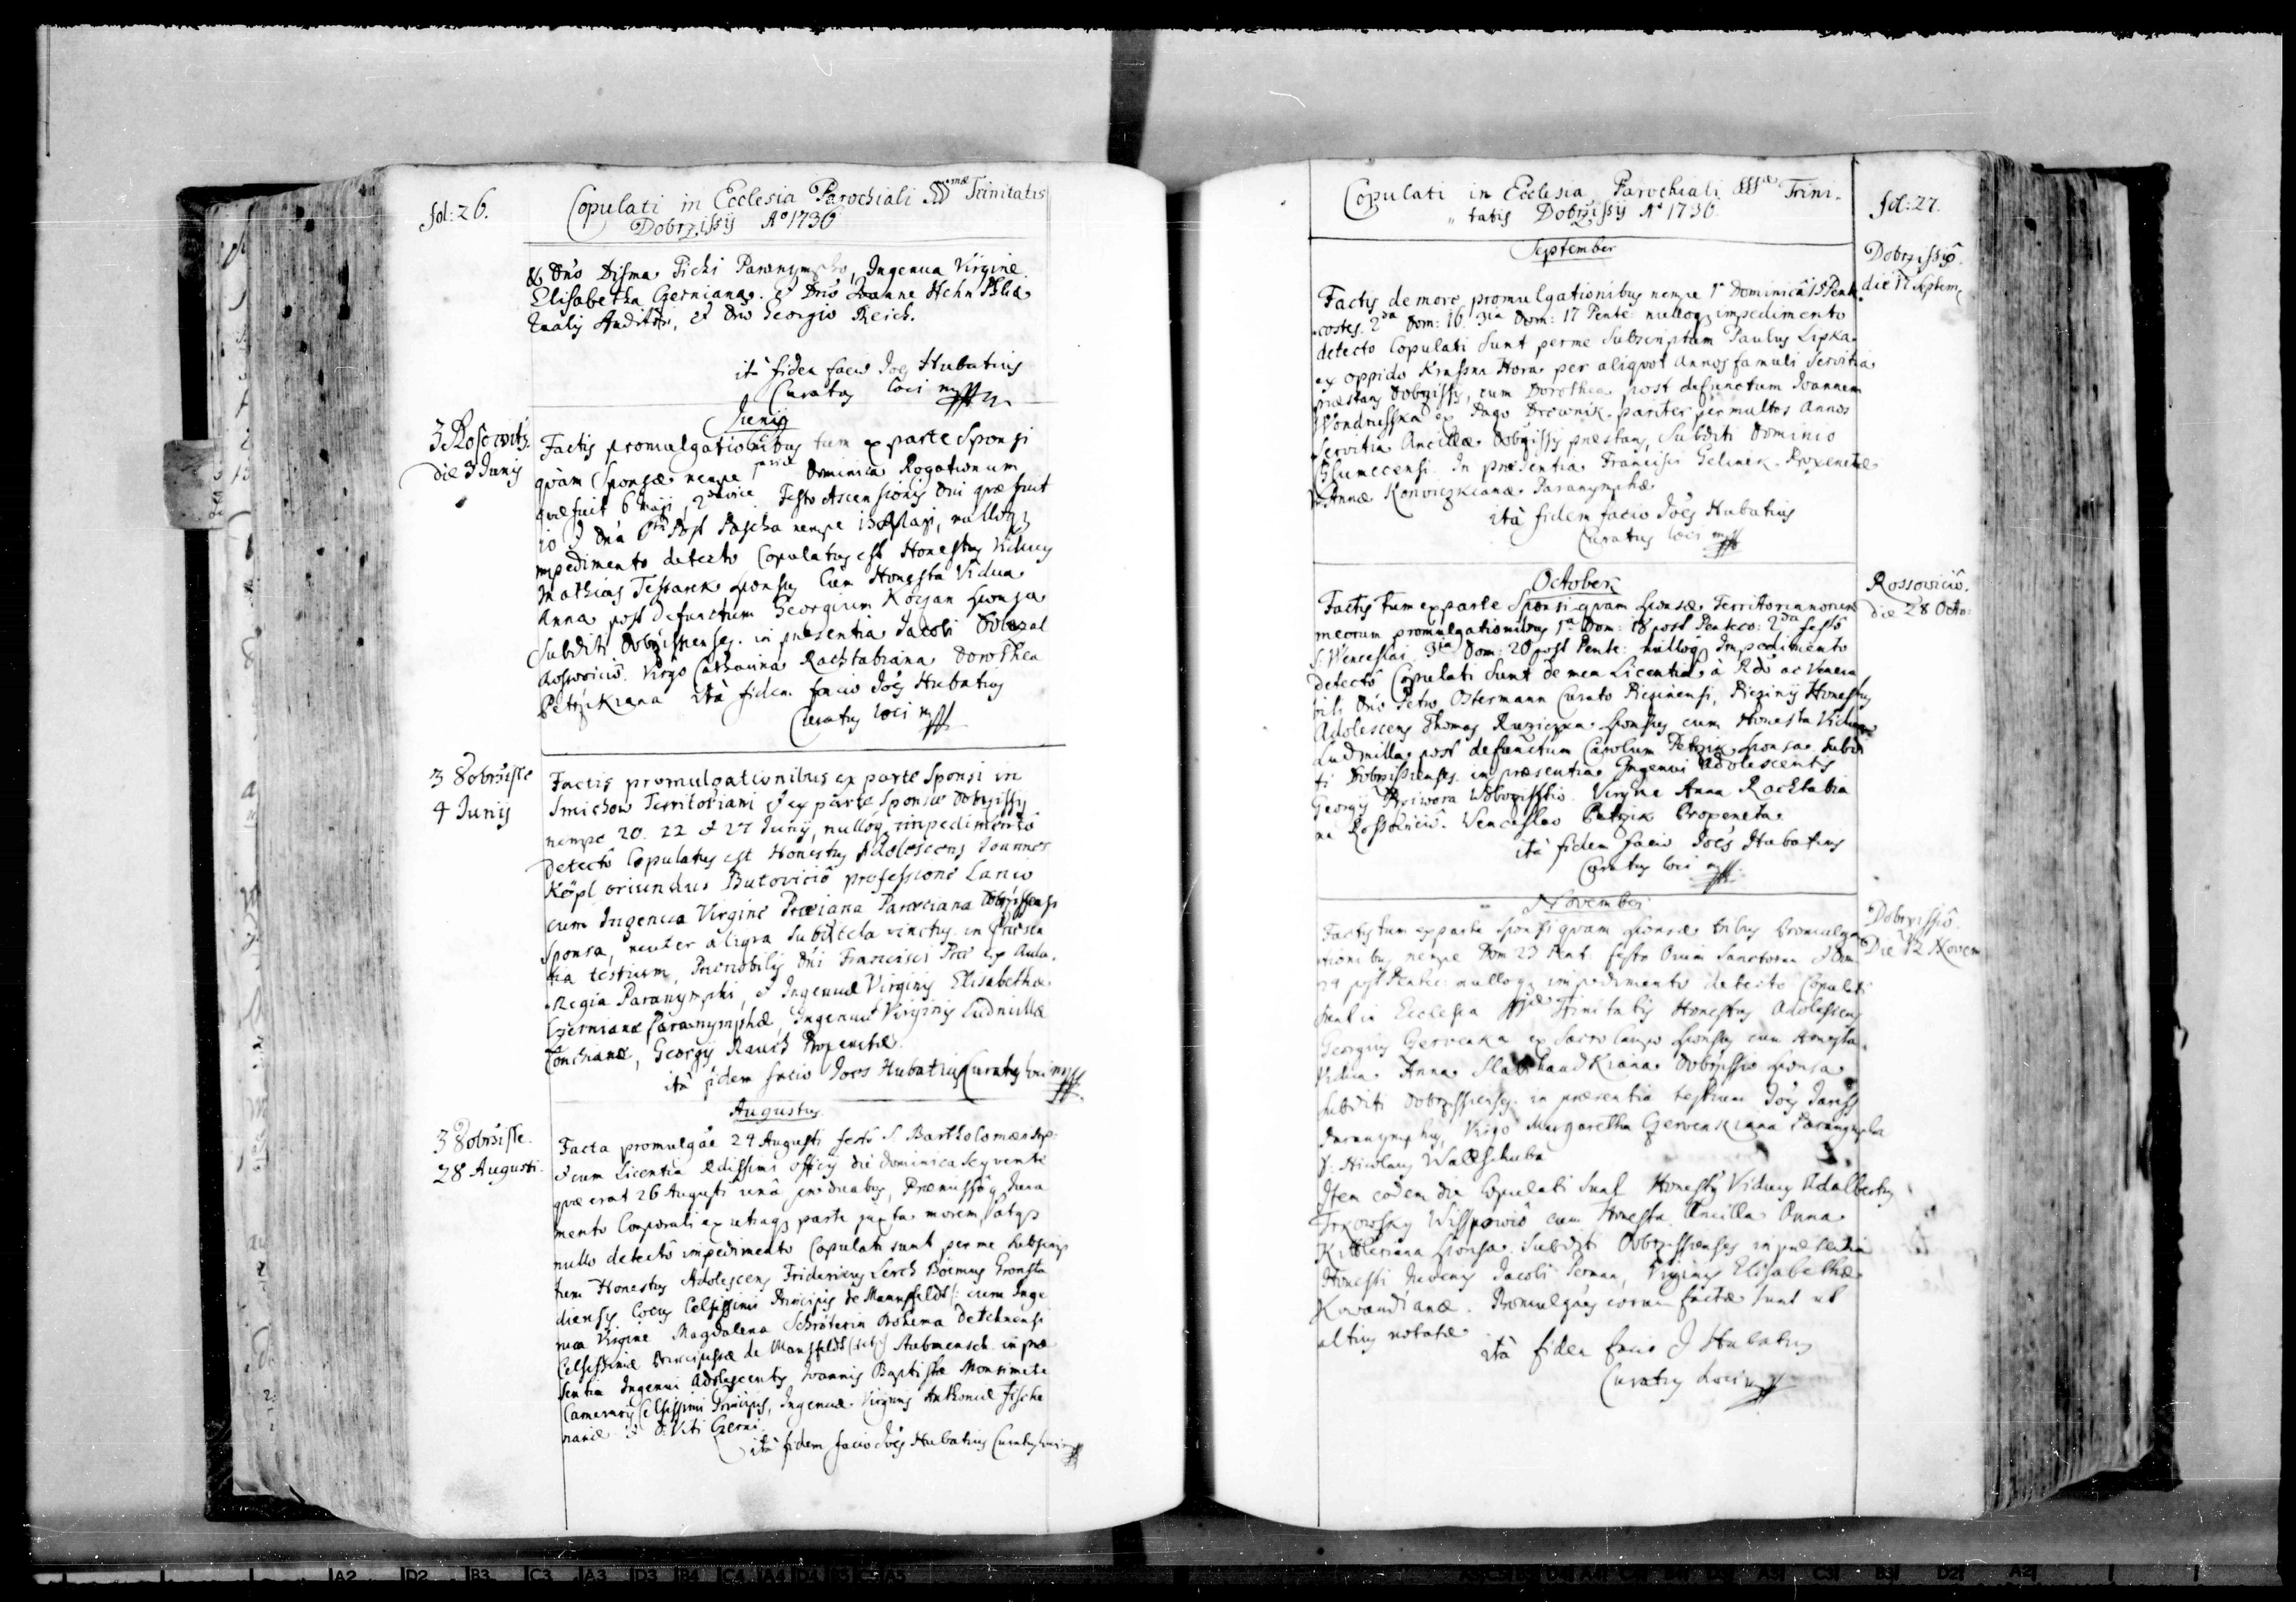 fol: 26.
Copulati in Ecclesia Parochiali SSS mæ Trinitatis
Dobrzissij Aº 1736
& Dno Disma Pichi Paranympho, Ingenua Virgine
Elisabetha Czerniana. & Dno Joanne Hehn
Auditori, & Dno Georgio Reich.
ità fidem facio Joês Hubatius
Curatus loci mpp
Junij
3 Rosowitz
die 3 Junij
Factis promulgationibus tum ex parte Sponsi
quàm Sponsæ nempe Dominica Rogationum
quæ fuit 6 Maji, 2da vice Festo Ascensionis Dni quæ fuit
10 & Dnâ 6ta Post Pascha nempe 13 Maji, nulloq;
impedimento detecto Copulatus est Honestus Viduus
Mathias Tessarek Sponsus cum Honesta Vidua
Anna post defunctum Georgium Koczan Sponsa
Subditi Dobrzissienses. in præsentia Jacobi Dolezal
Rosowiciô. Virgo Catharina Rachtabiana Dorothea
Petrzikiana ità fidem facio Joês Hubatius
Curatus loci mpp
3 Dobrzissie
4 Junij
Factis promulgationibus ex parte Sponsi in
Smichow Territoriani & ex parte Sponsæ Dobrzissij
nempe 20. 22 & 27 Junij, nulloq; impedimentô
Detectô Copulatus est Honestus Adolescens Joannes
Köpl oriundus Butoviciô professione Lanio
cum Ingenua Virgine Parociana Dobrzissensi
Sponsa, neuter aliqva Subditela vinctus. in Præsen
tia testium, Prænobilis Dñi Francisci ex Aula
Regia Paranymphi, & Ingenuæ Virginis Elisabethæ
Czernianæ Paranymphæ, Ingenuæ Virginis Ludmillæ
Georgij Rauch Proxenetæ.
ità fidem facio Joês Hubatius Curatus loci mpp
Augustus
3 Dobrzissie.
28 Augusti.
Facta promulgãe 24 Augusti festô S. Bartholomæi Ap:
& cum Licentia Rdissimi officij die Dominica seqvente
qvæ erat 26 Augusti unâ pro duabus, Præmissôq; Jura
mento Corporali ex utraq; parte juxta morem, atq;
nullo detectô impedimento Copulati sunt per me subscrip
tum Honestus Adolescens Fridericus Lerch Boemus
diensis Cocus Celsissimi Principis de Mannsfeldt /: cum Inge
nua Virgine Magdalena Schröterin Bohema Detchnensi
Celsissimæ Principissæ de Mansfeldt Stubmensch in præ
sentia Ingenui Adolescentis Joannis Baptistæ
Camerarij Celsissimi Principis, Ingenuæ Virginis Anthoniæ Fische
rianæ & D. Viti Czerni.
ità fidem facio Joês Hubatius Curatus loci mpp
Copulati in Ecclesia Parochiali SSSæ Trini-
tatis Dobrzissij Aº 1736.
fol: 27.
September
Dobrzissiô.
die 17 Septem
Factis de more promulgationibus nempe 1ª Dominicâ 15 Pente
costes. 2da Dom: 16. 3tia Dom: 17 Pente: nulloq; impedimento
detecto Copulati sunt per me Subscriptum Paulus Lipka
ex oppido Krassna Hora per aliqvot Annos famuli Servitia
præstans Dobrzissij, cum Dorothea post defunctum Joannem
Wondrusska ex Pago Drewnik pariter per multos Annos
Servitia Ancillæ Dobrzissij præstans, Subditi Dominio
Chlumecensi. In præsentia Francisci Gelinek Proxenetæ
& Annæ Konwiczkianæ Paranymphæ
ità fidem facio Joês Hubatius
Curatus loci mpp
October
Rossoviciô.
die 28 Octo:
Factis tum ex parte Sponsi qvam Sponsæ Territorianorum
meorum promulgationibus 1ª Dom: 18 post Penteco: 2da festô
S: Wenceslai. 3tia Dom: 20 post Pente: nulloq; Impedimento
detectô Copulati Sunt de mea Licentia à Rdo ac Venera
bili Dnô Petro Ostermann Curato Piczinensi, Piczinij Honestus
Adolescens Thomas Ruziczka Sponsus cum Honesta Vidua
Ludmilla post defunctum Carolum Petrzik Sponsa Subdi
ti Dobrzissienses. in præsentia Ingenui Adolescentis
Georgij Prziwora Wobozissstio. Virgine Anna Rachtabia
na Rossoviciô. Wenceslao Petrzik Proxeneta
ità fidem facio Joês Hubatius
Curatus loci mpp
November
Dobrzissiô.
Die 12 Novem
Factis tum ex parte Sponsi qvam Sponsæ tribus Promulga
tionibus nempe Dom 23 Pent. festo Oium Sanctorum & Dom
24 post Pentec: nulloq; impedimento detectô Copulati
Sunt in Ecclesia SSSæ Trinitatis Honestus Adolescens
Georgius Gervenka ex Sacro Campo Sponsus cum Honesta
Vidua Anna Dobrzissio Sponsa
Subditi Dobrzissienses. in præsentia testium Joês Janss
Paranymphus, Virgo Margaretha Gervenkiana Paranympha
& Nicolaus Walsschuba
Item eodem die Copulati Sunt Honestus Viduus Adalbertus
Trzowsky cum Honesta Ancilla Anna
Kittleriana Sponsa Subditi Dobrzissienses in præsentia
Honesti Juvenis Jacobi Perman, Virginis Elisabethæ
Kowandianæ. Promulgães eorum factæ sunt ut
altius notatæ
ità fidem facio J Hubatius
Curatus Loci mpp